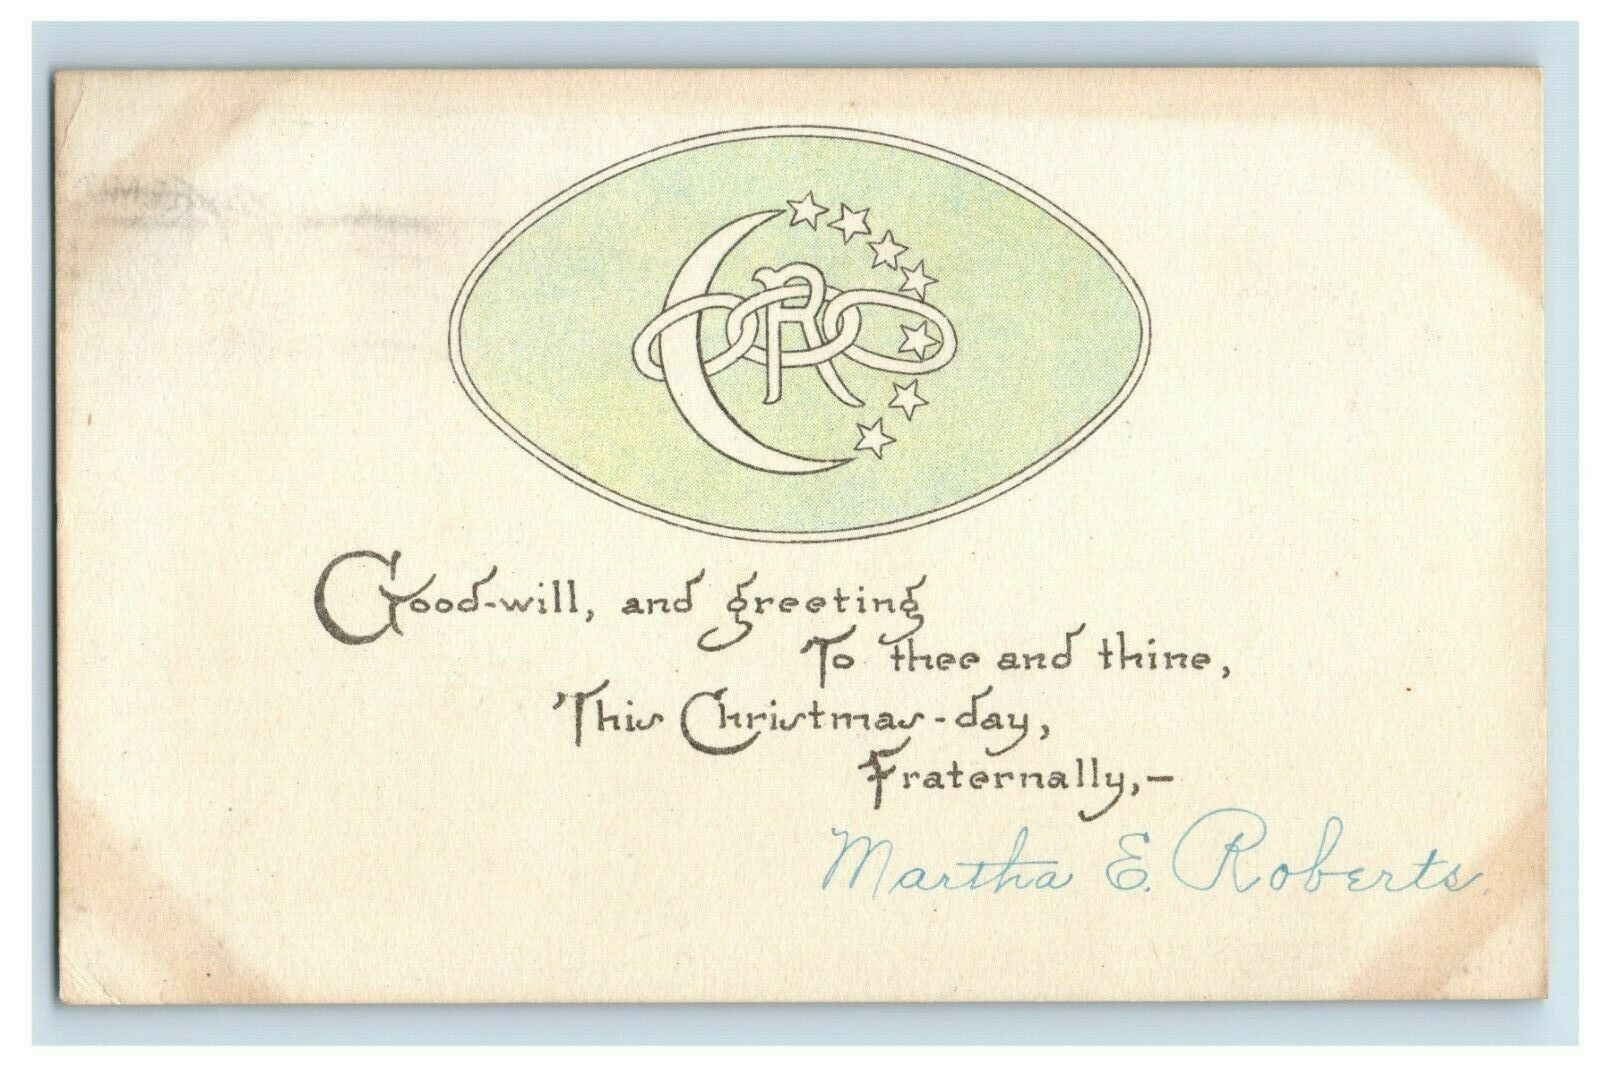 R
Good-will, and greeting
To thee and thine,
This Christmas-day,
Fraternally,—
Martha E. Roberts